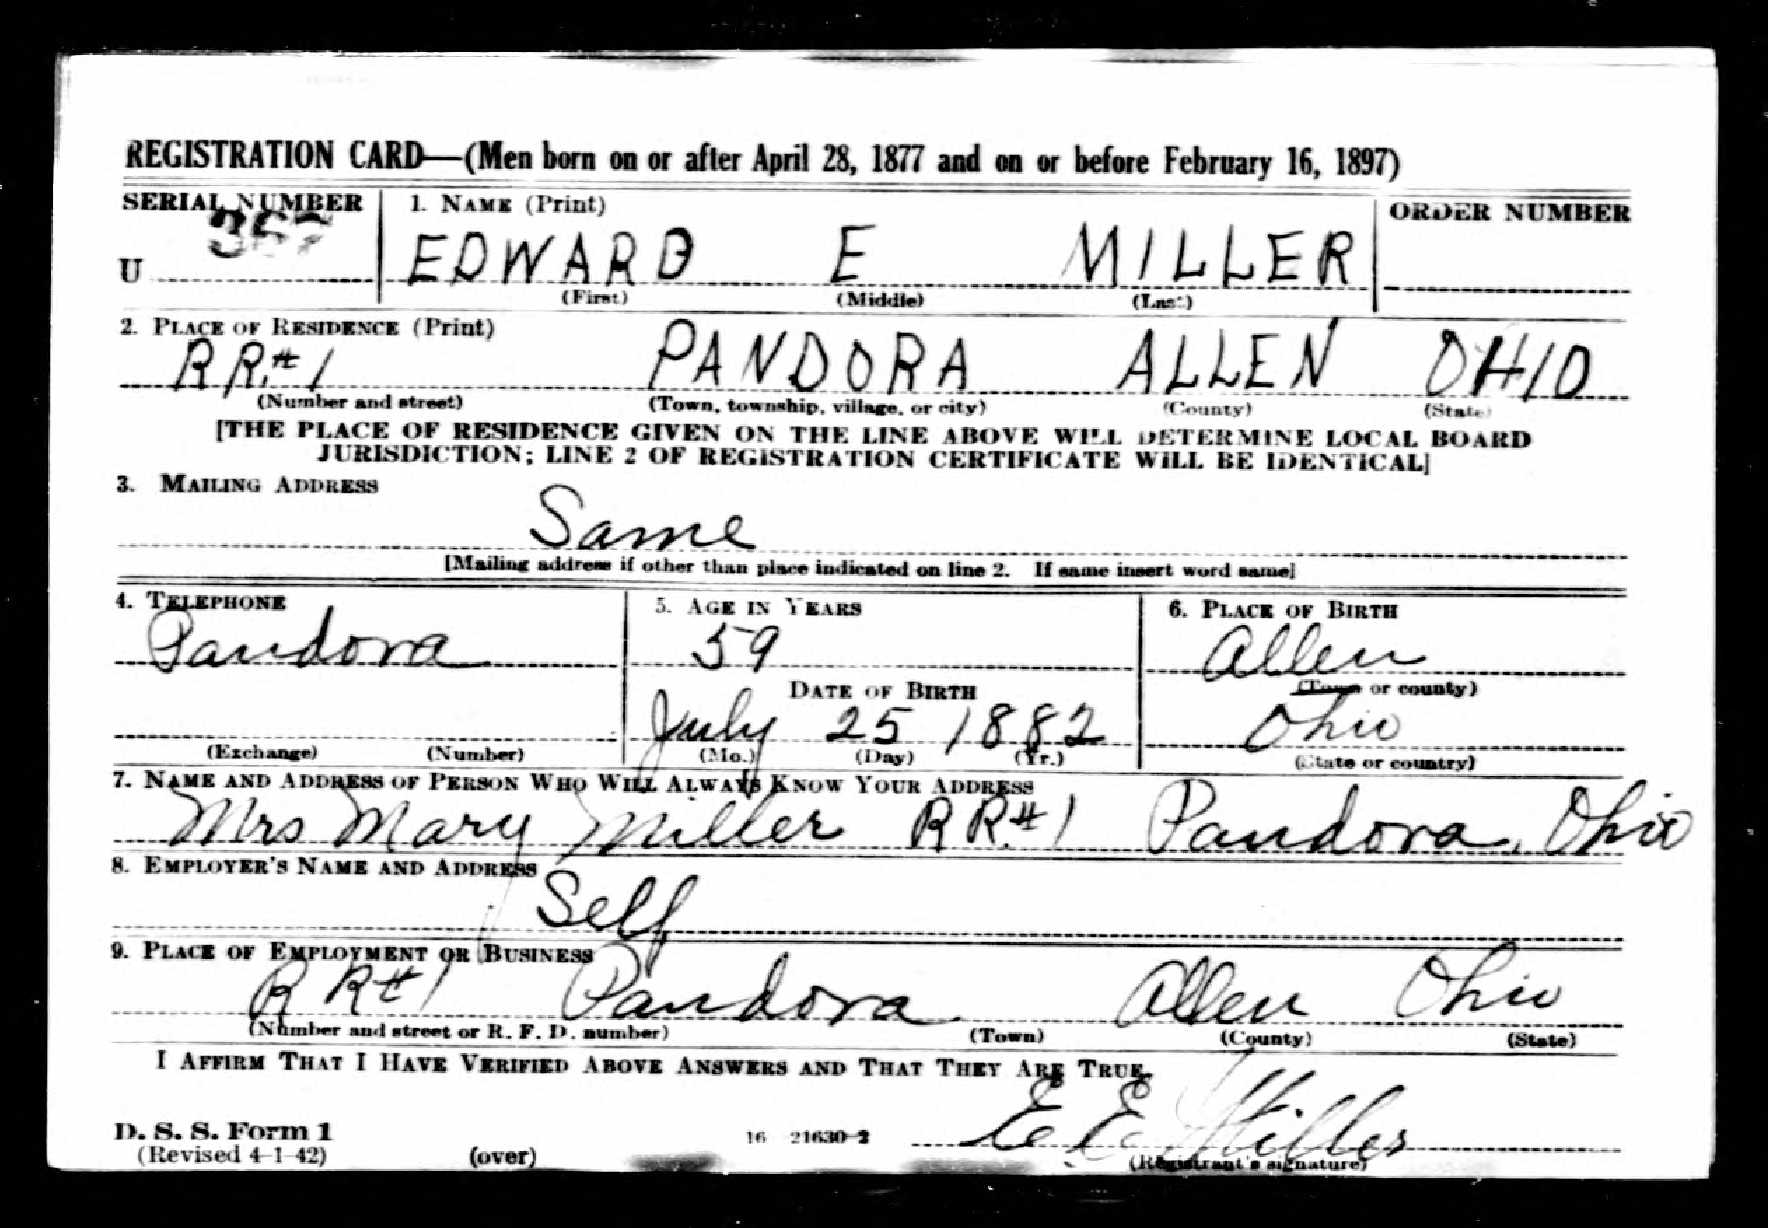 REGISTRATION CARD—(Men born on or after April 28, 1877 and on or before February 16, 1897)
SERIAL NUMBER 1. NAME (Print) ORDER NUMBER
U 357 EDWARD E MILLER
(First) (Middle) (Last)
2. PLACE OF RESIDENCE (Print)
RR.#1 PANDORA ALLEN OHIO
(Number and street) (Town, township, village, or city) (County) (State)
[THE PLACE OF RESIDENCE GIVEN ON THE LINE ABOVE WILL DETERMINE LOCAL BOARD
JURISDICTION; LINE 2 OF REGISTRATION CERTIFICATE WILL BE IDENTICAL]
3. MAILING ADDRESS
Same
[Mailing address if other than place indicated on line 2. If same insert word same]
4. TELEPHONE 5. AGE IN YEARS 6. PLACE OF BIRTH
Pandora 59 Allen
DATE OF BIRTH (Town or county)
July 25 1882 Ohio
(Exchange) (Number) (Mo.) (Day) (Yr.) (State or country)
7. NAME AND ADDRESS OF PERSON WHO WILL ALWAYS KNOW YOUR ADDRESS
Mrs Mary Miller RR.#1 Pandora, Ohio
8. EMPLOYER'S NAME AND ADDRESS
Self
9. PLACE OF EMPLOYMENT OR BUSINESS
R R#1 Pandora Allen Ohio
(Number and street or R. F. D. number) (Town) (County) (State)
I AFFIRM THAT I HAVE VERIFIED ABOVE ANSWERS AND THAT THEY ARE TRUE.
E E Miller
D. S. S. Form 1
(Revised 4-1-42) (over) 16 21630-2 (Registrant's signature)